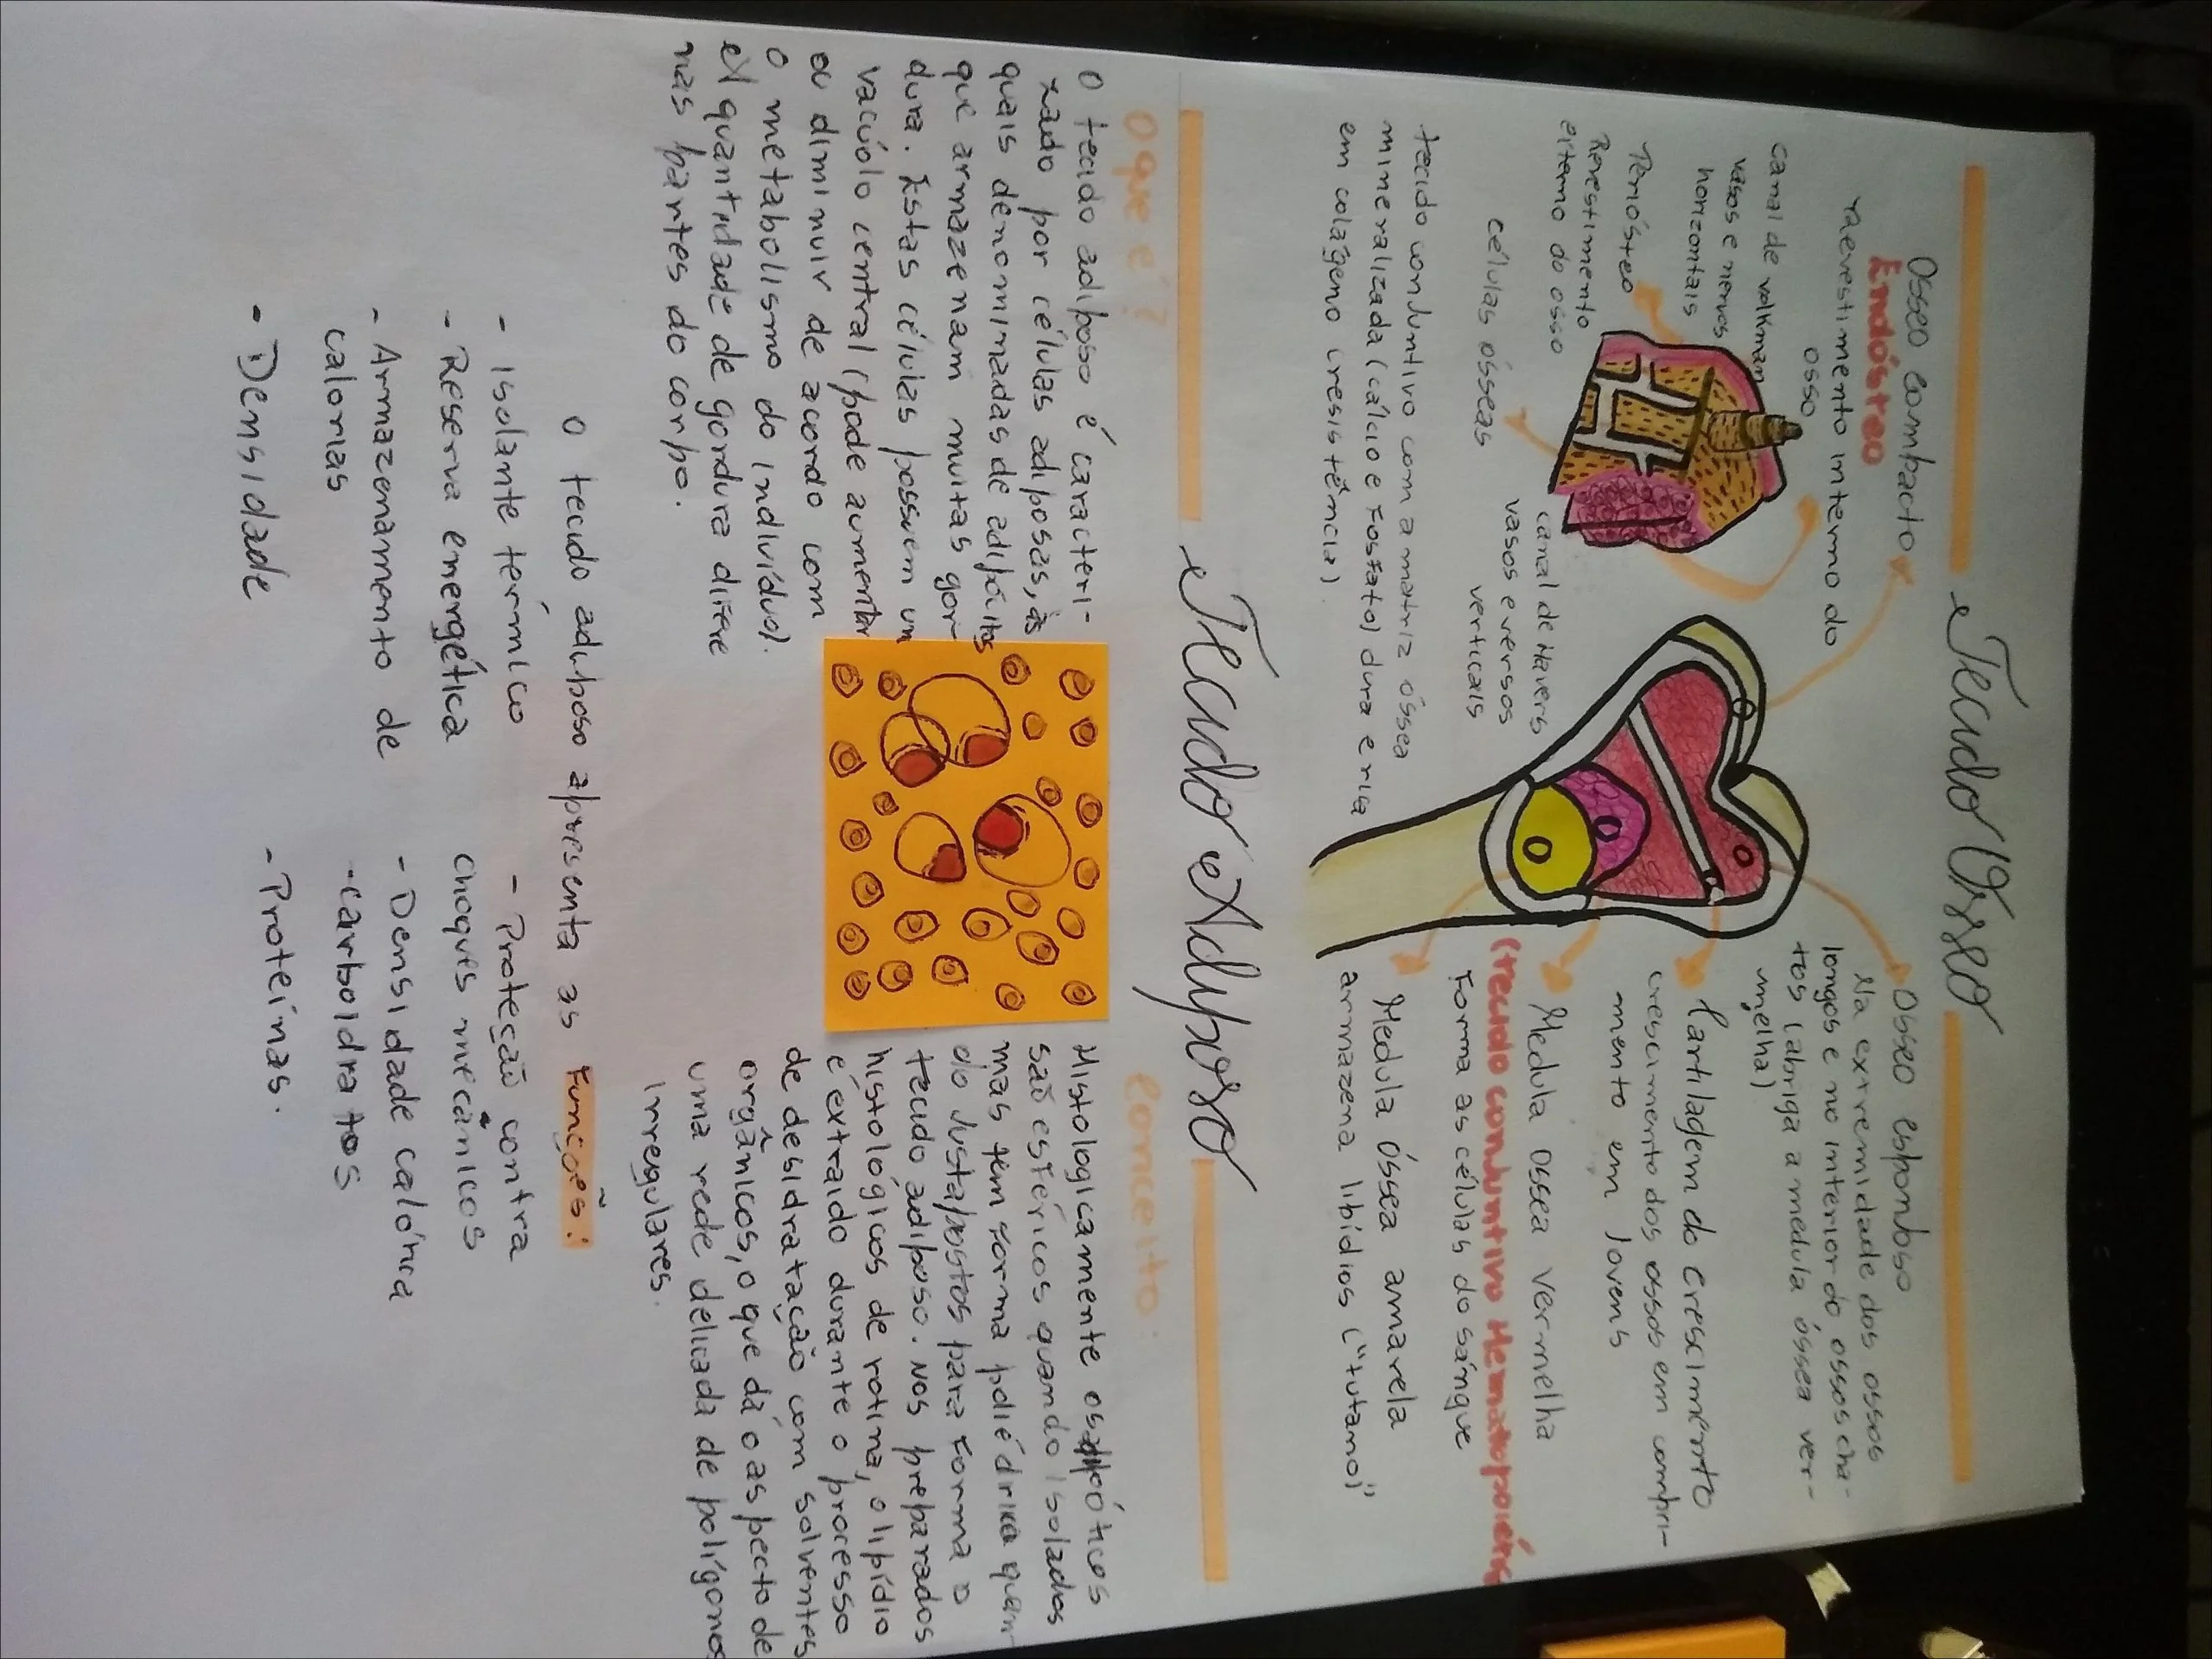 Tecido Ósseo
Osseo compacto
Endósteo
raevestimento interno do
osso
canal de volkman
vasos e nervos
horizontais
Periósteo
Revestimento
externo do osso
células ósseas
canal de Havers
vasos e versos
verticais
tecido conjuntivo com a matriz óssea
mineralizada (cálcio e Fosfato) dura e rica
em colágeno (resistência).
Osseo esponjoso
Na extremidade dos ossos
longos e no interior do ossos cha-
tos (abriga a medula óssea ver-
melha)
Cartilagem do crescimento
crescimento dos ossos em compri-
mento em jovens
Medula ossea vermelha
(tecido conjuntivo Hematopoiético
Forma as células do sangue
Medula óssea amarela
armazena libídios ("tutano")
Tecido Adiposo
O que é?
O tecido adiposo é caracteri-
zado por células adiposas, às
quais denominadas de adipócitos
que armazenam muitas gor-
dura. Estas células possuem um
vacúolo central (pode aumentar
ou diminuir de acordo com
o metabolismo do indivíduo).
el quantidade de gordura difere
nas partes do corpo.
Conceito:
Histologicamente os adipócitos
são esféricos quando isolados
mas tem forma poliédrica quan
do justapostos para Forma o
tecido adiposo. Nos preparados
histológicos de rotina, o lipídio
é extraido durante o processo
de desidratação com solventes
orgânicos, o que dá o aspecto de
uma rede delicada de polígonos
irregulares.
O tecido adiposo apresenta as Funções:
- Isolante térmico
- Reserva energética
- Armazenamento de
calorias
- Densidade
- Proteção contra
choques mecânicos
- Densidade calórica
- carboidratos
- Proteínas.